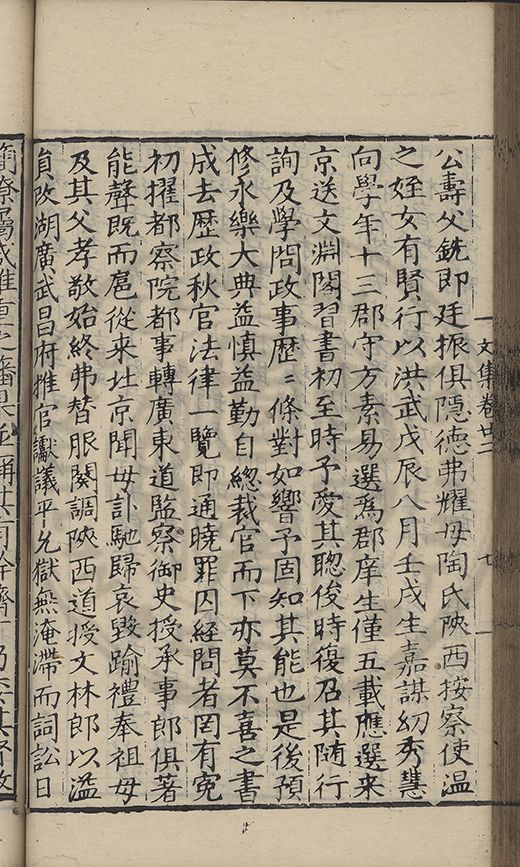 文集卷廿二
七
公壽父銑即廷振俱隱德弗耀母陶氏陜西按察使温
之姪女有賢行以洪武戊辰八月壬戌生嘉謀㓜秀慧
向學年十三郡守方素易選爲郡庠生僅五載應選来
京送文淵閣習書初至時予愛其聦俊時復召其随行
詢及學問政事歷〻條對如響予固知其能也是後預
修永樂大典益慎益勤自緫裁官而下亦莫不喜之書
成去歷政秋官法律一覽即通曉罪囚経問者罔有寃
初擢都察院都事轉廣東道監察御史授承事郎俱著
能聲既而扈從来北京聞母訃馳歸哀毀踰禮奉祖母
及其父孝敬始終弗替服闋調陜西道授文林郎以溢
貟改湖廣武昌府推官讞議平允獄無淹滯而詞訟日